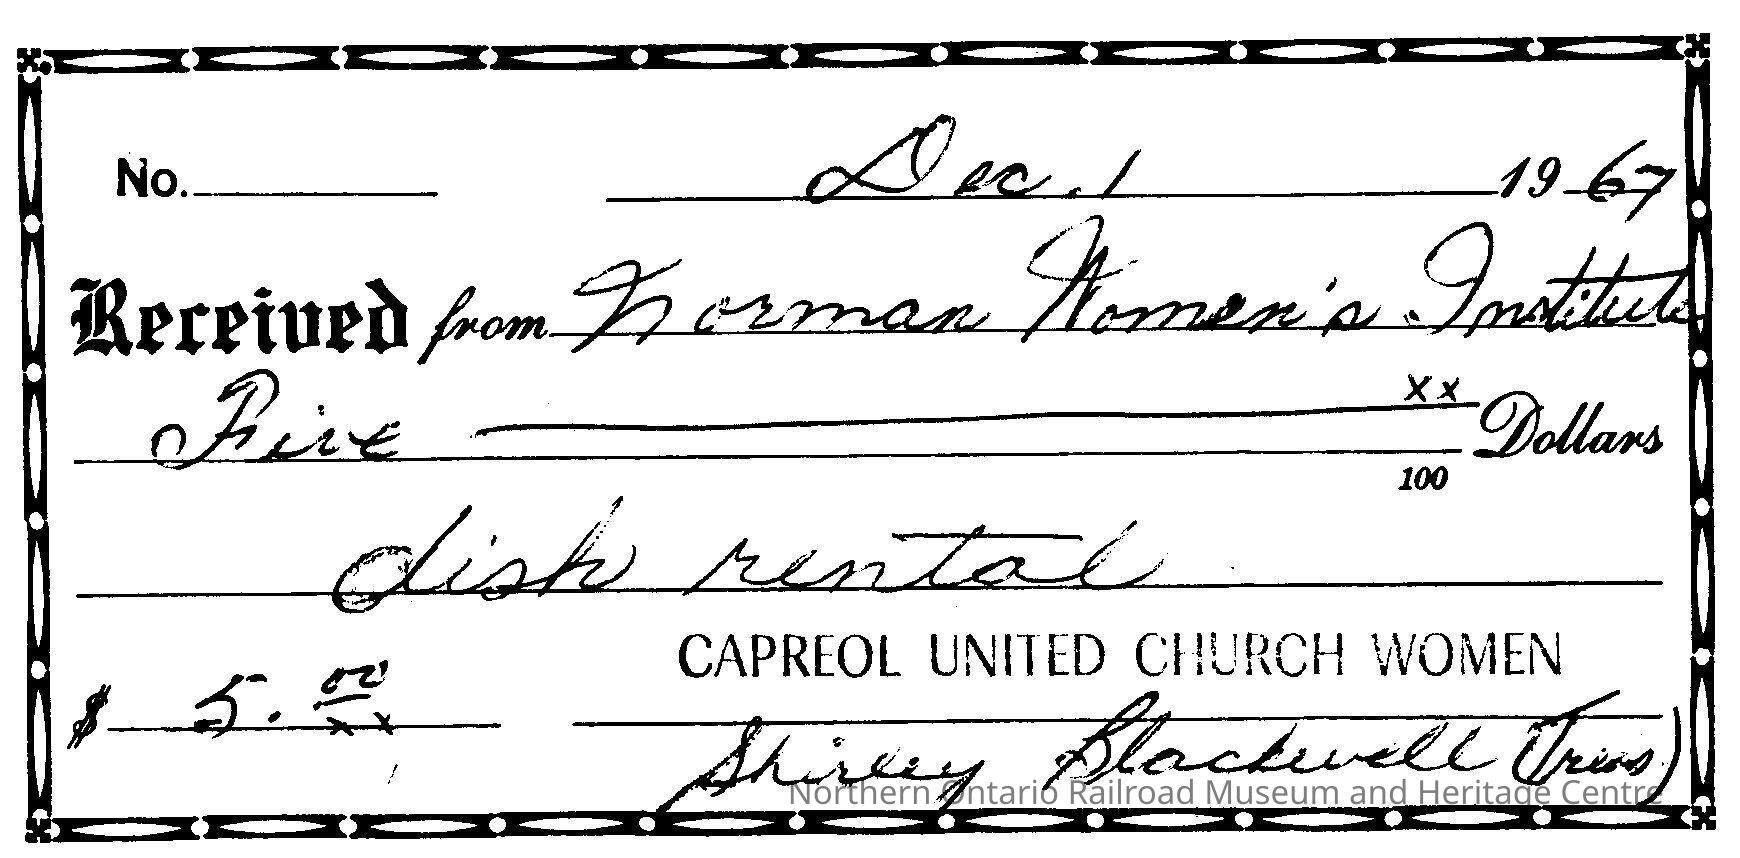 No. Dec. 1 19 67
Received from Norman Women's Institute
Five xx Dollars
100
dish rental
CAPREOL UNITED CHURCH WOMEN
$ 5. 00
xx
Shirley Blackwell (Treas)
Northern Ontario Railroad Museum and Heritage Centre